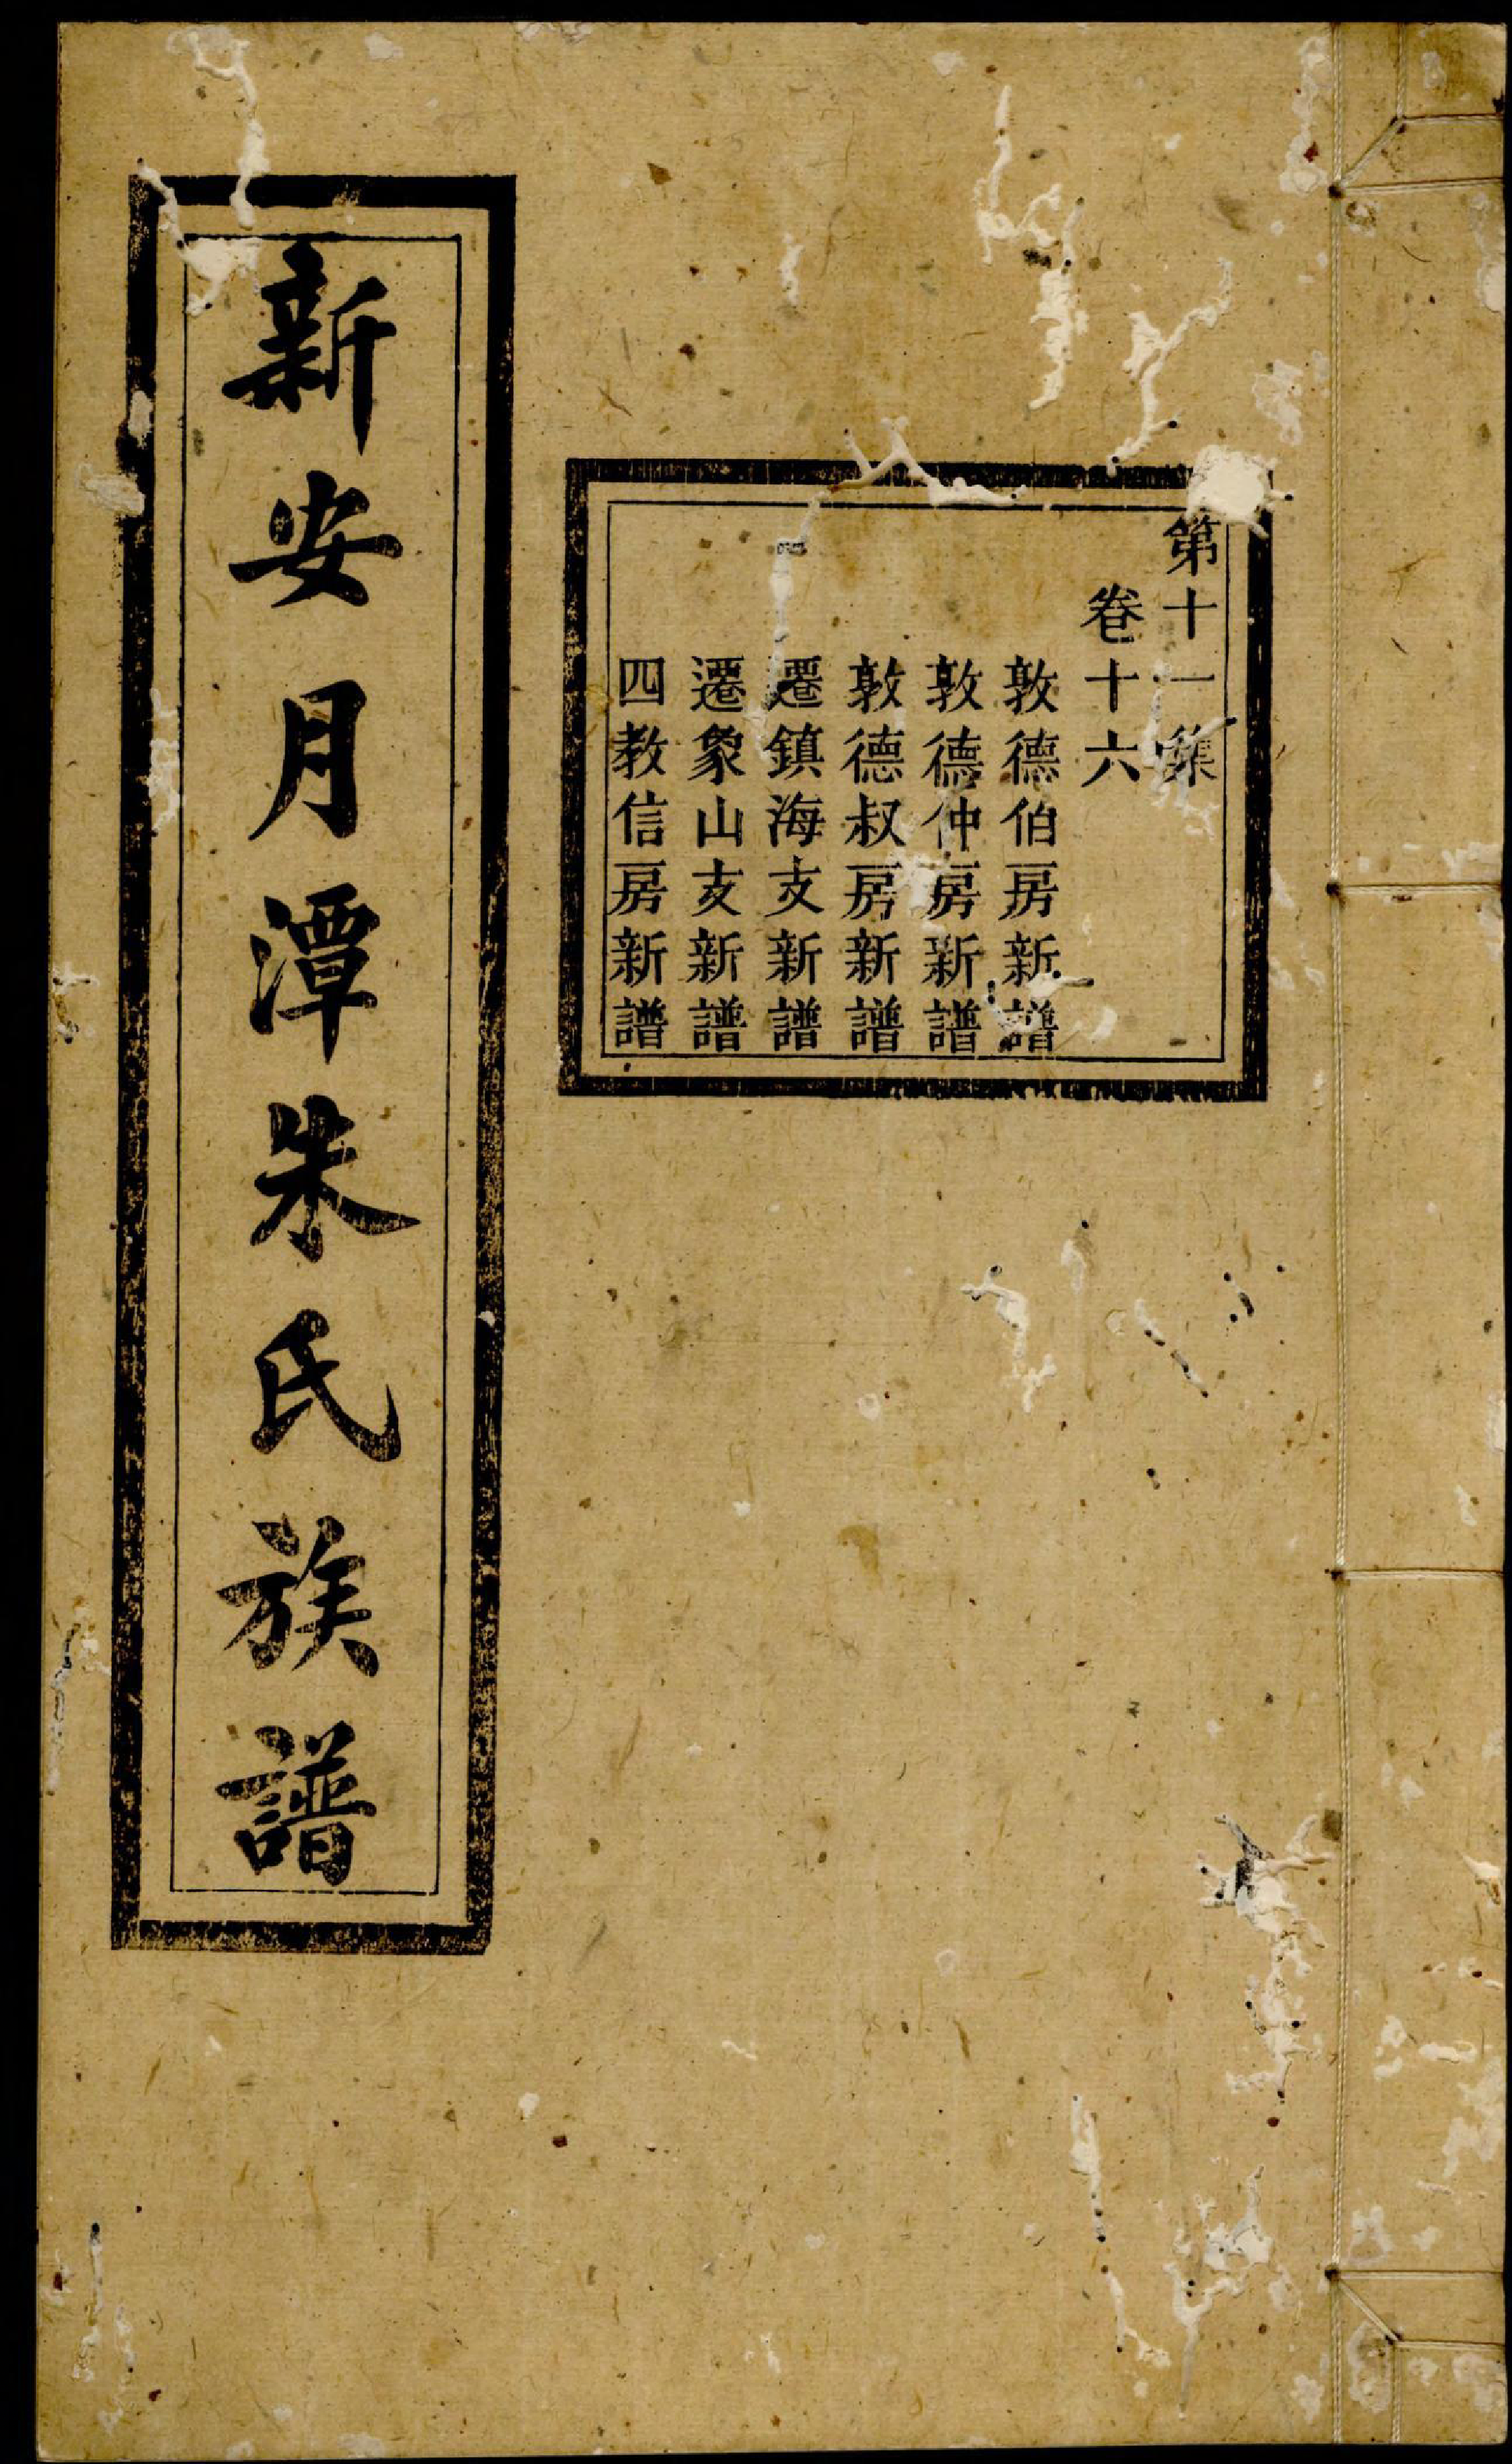 第十一集
卷十六
敦德伯房新譜
敦德仲房新譜
敦德叔房新譜
遷鎮海支新譜
遷象山支新譜
四教信房新譜
新安月潭朱氏族譜